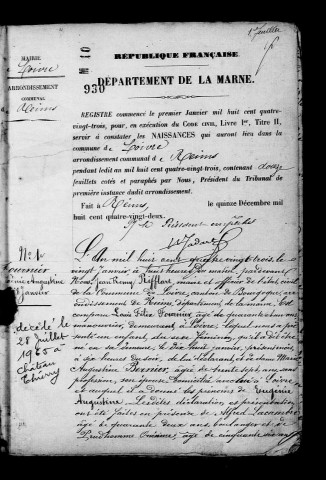 1er Juillet
MAIRIE
de Loivre
ARRONDISSEMENT
COMMUNAL
Reims
930
RÉPUBLIQUE FRANÇAISE.
DÉPARTEMENT DE LA MARNE.
REGISTRE commencé le premier Janvier mil huit cent quatre-
vingt-trois, pour, en exécution du Code civil, Livre Ier, Titre II,
servir à constater les NAISSANCES qui auront lieu dans la
commune de Loivre
arrondissement communal de Reims
pendant ledit an mil huit cent quatre-vingt-trois, contenant douze
feuillets cotés et paraphés par Nous, Président du Tribunal de
première instance dudit arrondissement.
Fait à Reims, le quinze Décembre mil
huit cent quatre-vingt-deux.
No 1
Fournier
Augustine
Janvier
décédée le
28 Juillet
1965 à
château
Thierry
L'an mil huit cent quatre vingt trois, le
vingt janvier à heures du matin, pardevant
Nous, Jean Remy Pifflart, maire et officier de l'état civil
de la Commune de Loivre, canton de Bourgogne, ar-
rondissement de Reims, département de la marne, Est
comparu Louis Félix Fournier, âgé de quarante ans
manouvrier, demeurant à Loivre, lequel nous a pré-
senté un enfant du sexe féminin, qu'il a dit être
né en sa demeure, le dix huit janvier, présent mois,
à dix heures du soir, de lui déclarant, et de dame Marie
Augustine Bernier, âgée de trente sept ans, sans
profession, son épouse, domiciliée avec lui à Loivre
et auquel il a donné les prénoms de
Augustine. Lesdites déclaration et présentation
ont été faites en présence de Alfred
âgé de quarante deux ans, boulanger, et de
Prudhomme Onésime, âgé de cinquante